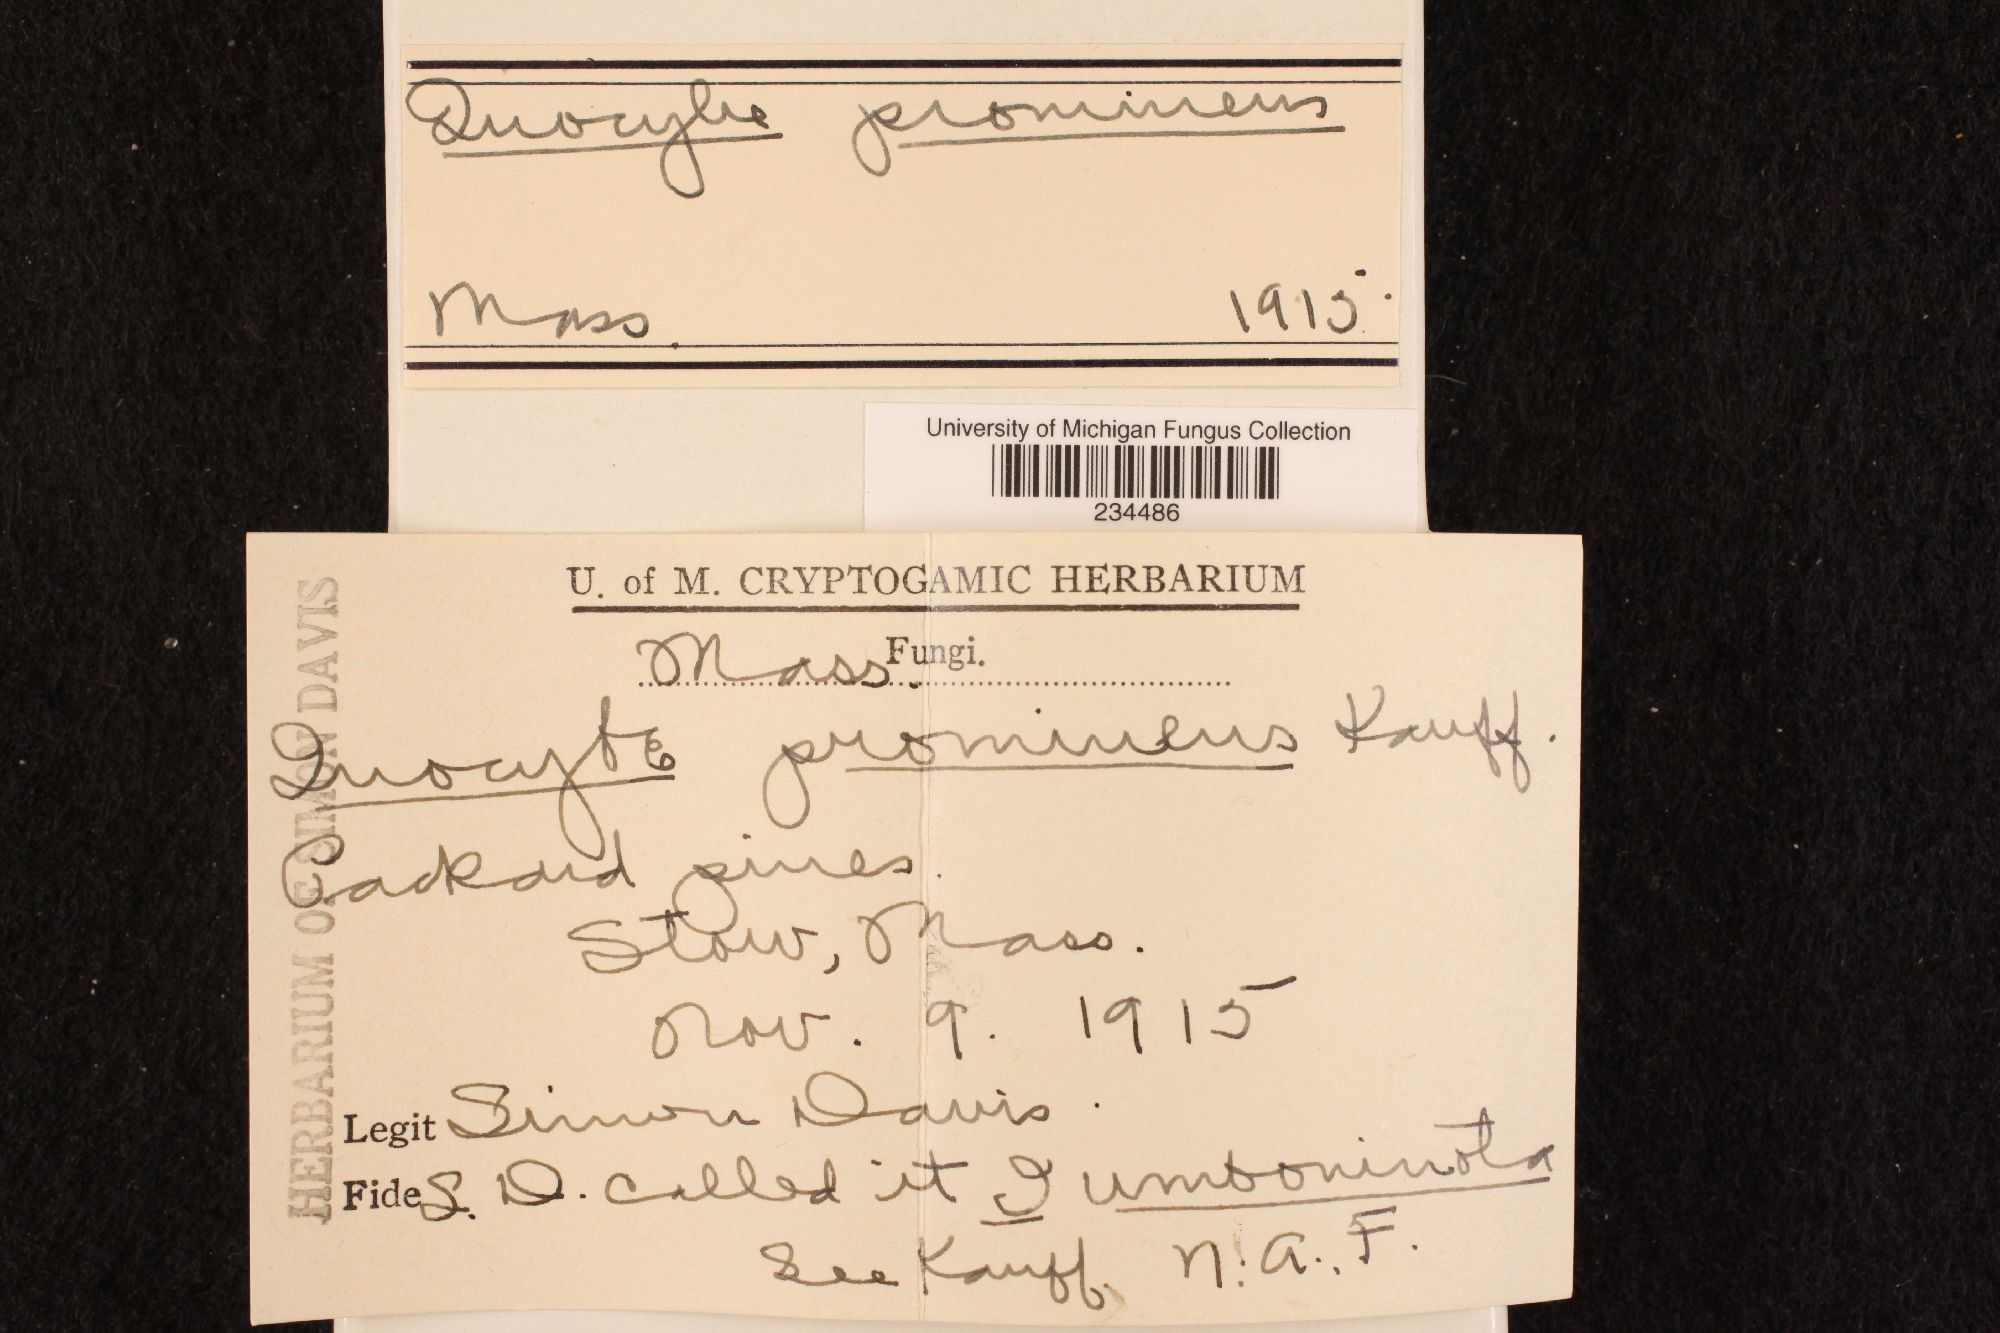 Inocybe prominens
Mass. 1915.
University of Michigan Fungus Collection
234486
U. of M. CRYPTOGAMIC HERBARIUM
Mass. Fungi.
Inocybe prominens Kauff.
Packard pines.
Stow, Mass.
Nov. 9. 1915
Legit Simon Davis.
Fide S. D. called it I umboninota
See Kauff. N. A. F.
HERBARIUM OF SIMON DAVIS